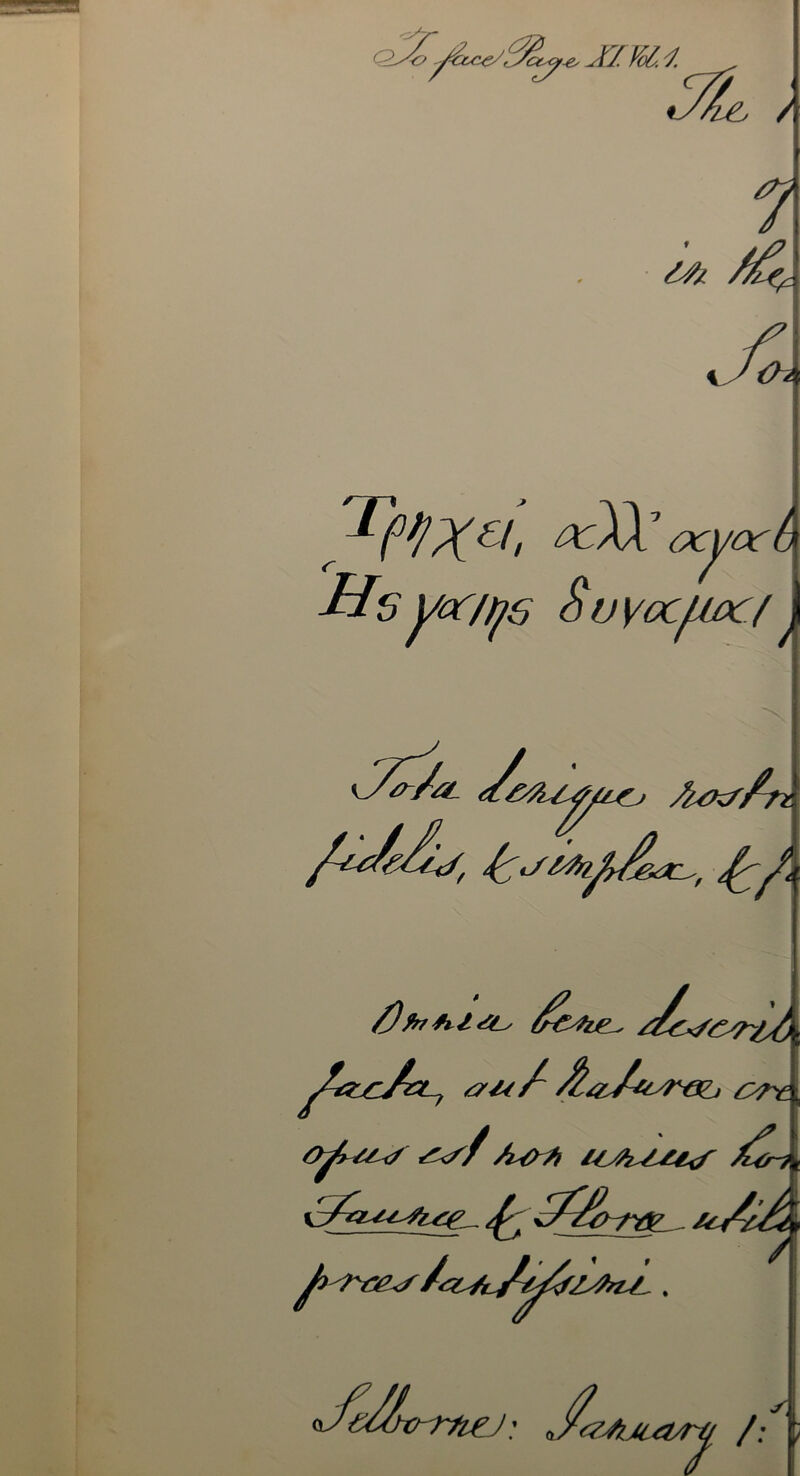 To face Page XI Vol. 1.
The
in the
Τρηχεῖ, ἀλλ' ἀγαθ
Ης γαίης δυναμαι
Tota denique nostr
fidelis, & simplex, &
Omnia bene descri
facta, aut Natura
opus est non unius
Faunæ & Floræ
Selborne: January 1: